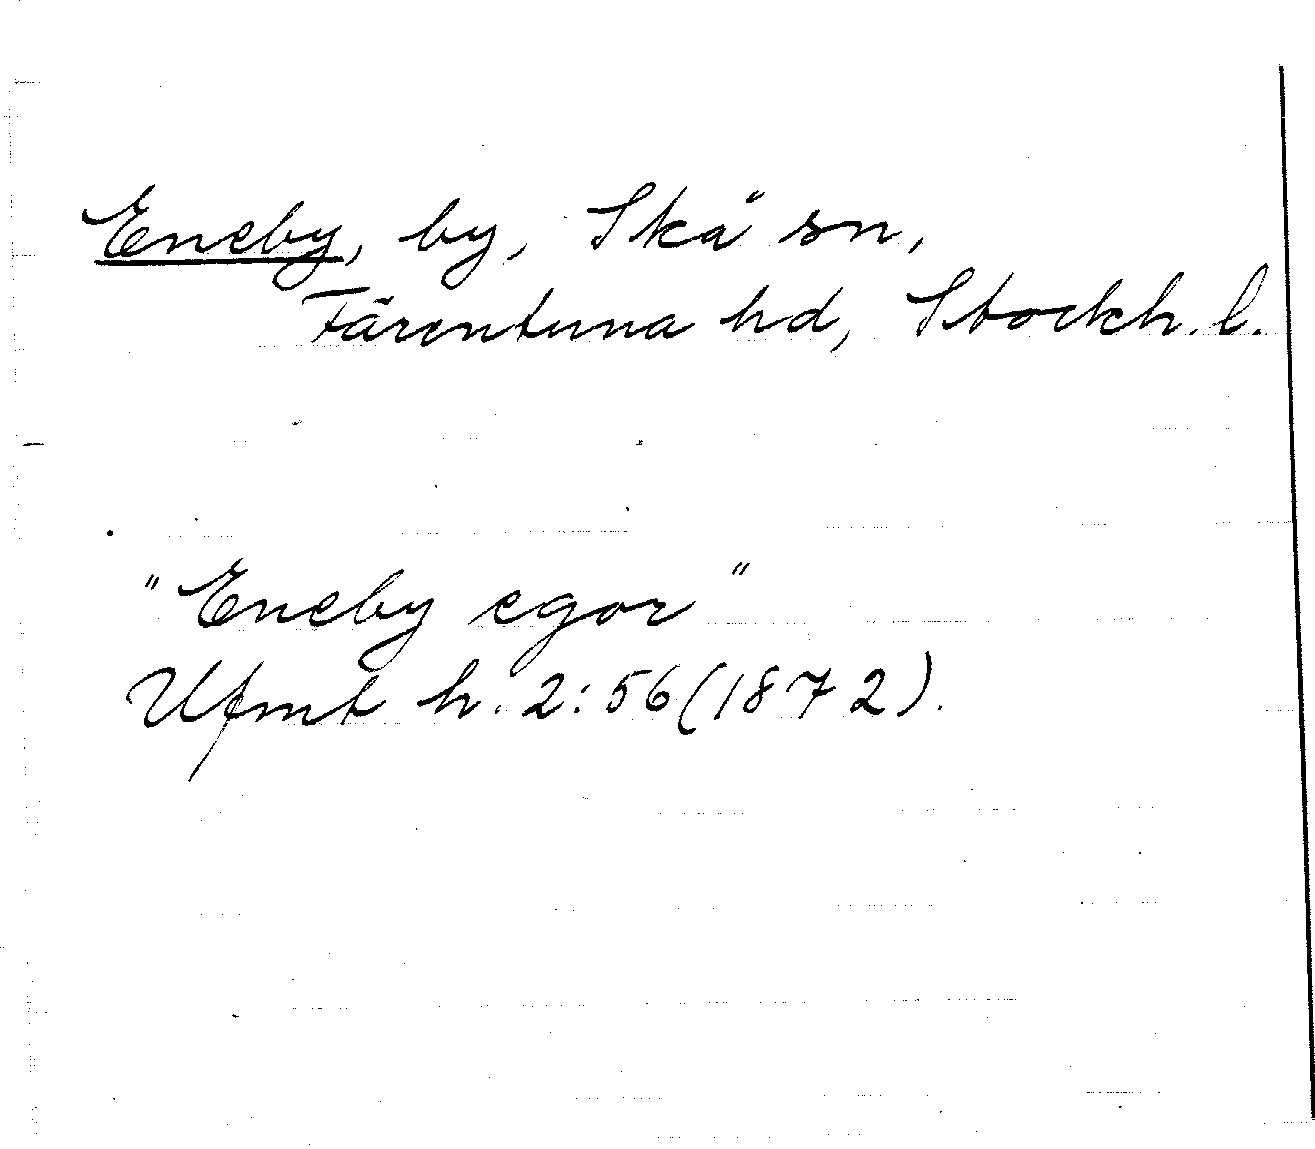 Eneby, by, Skå sn,
Färentuna hd, Stockh. l.
"Eneby egor"
Ufmt h. 2:56 (1872).